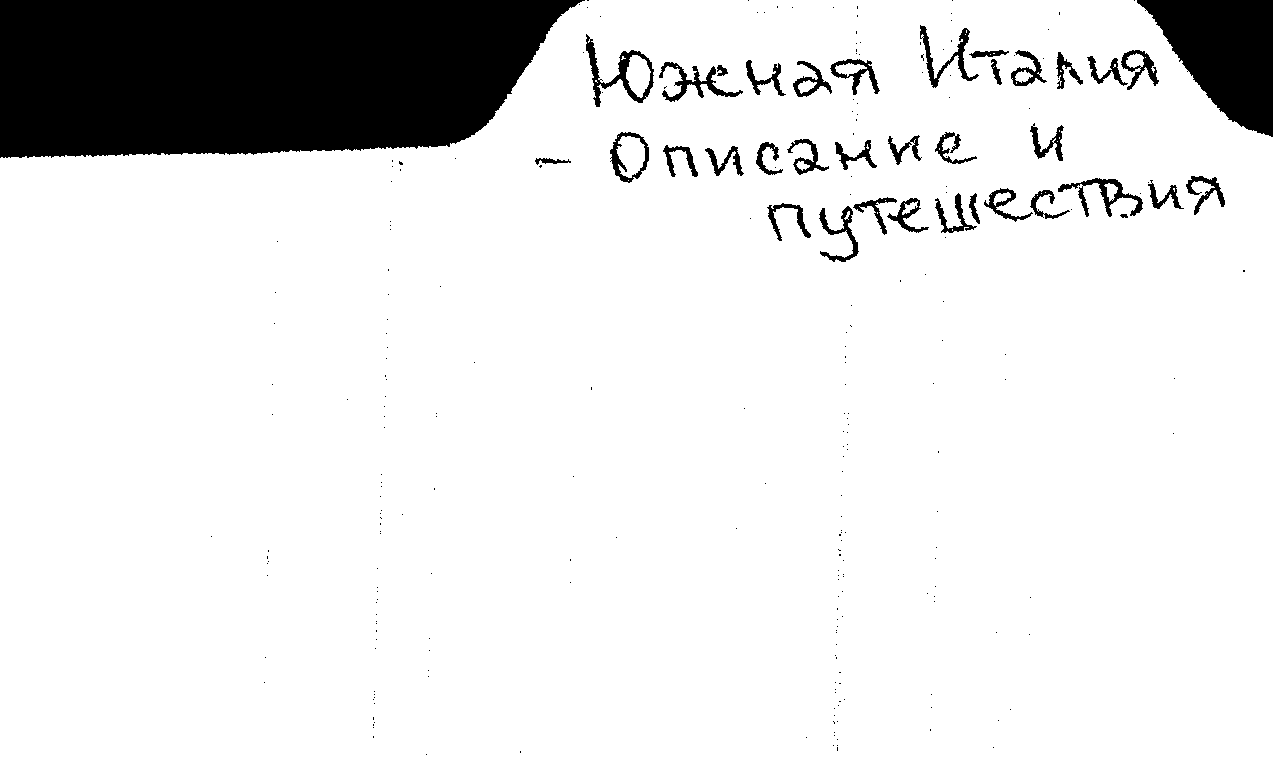 Южная Италия
- Описание и
путешествия